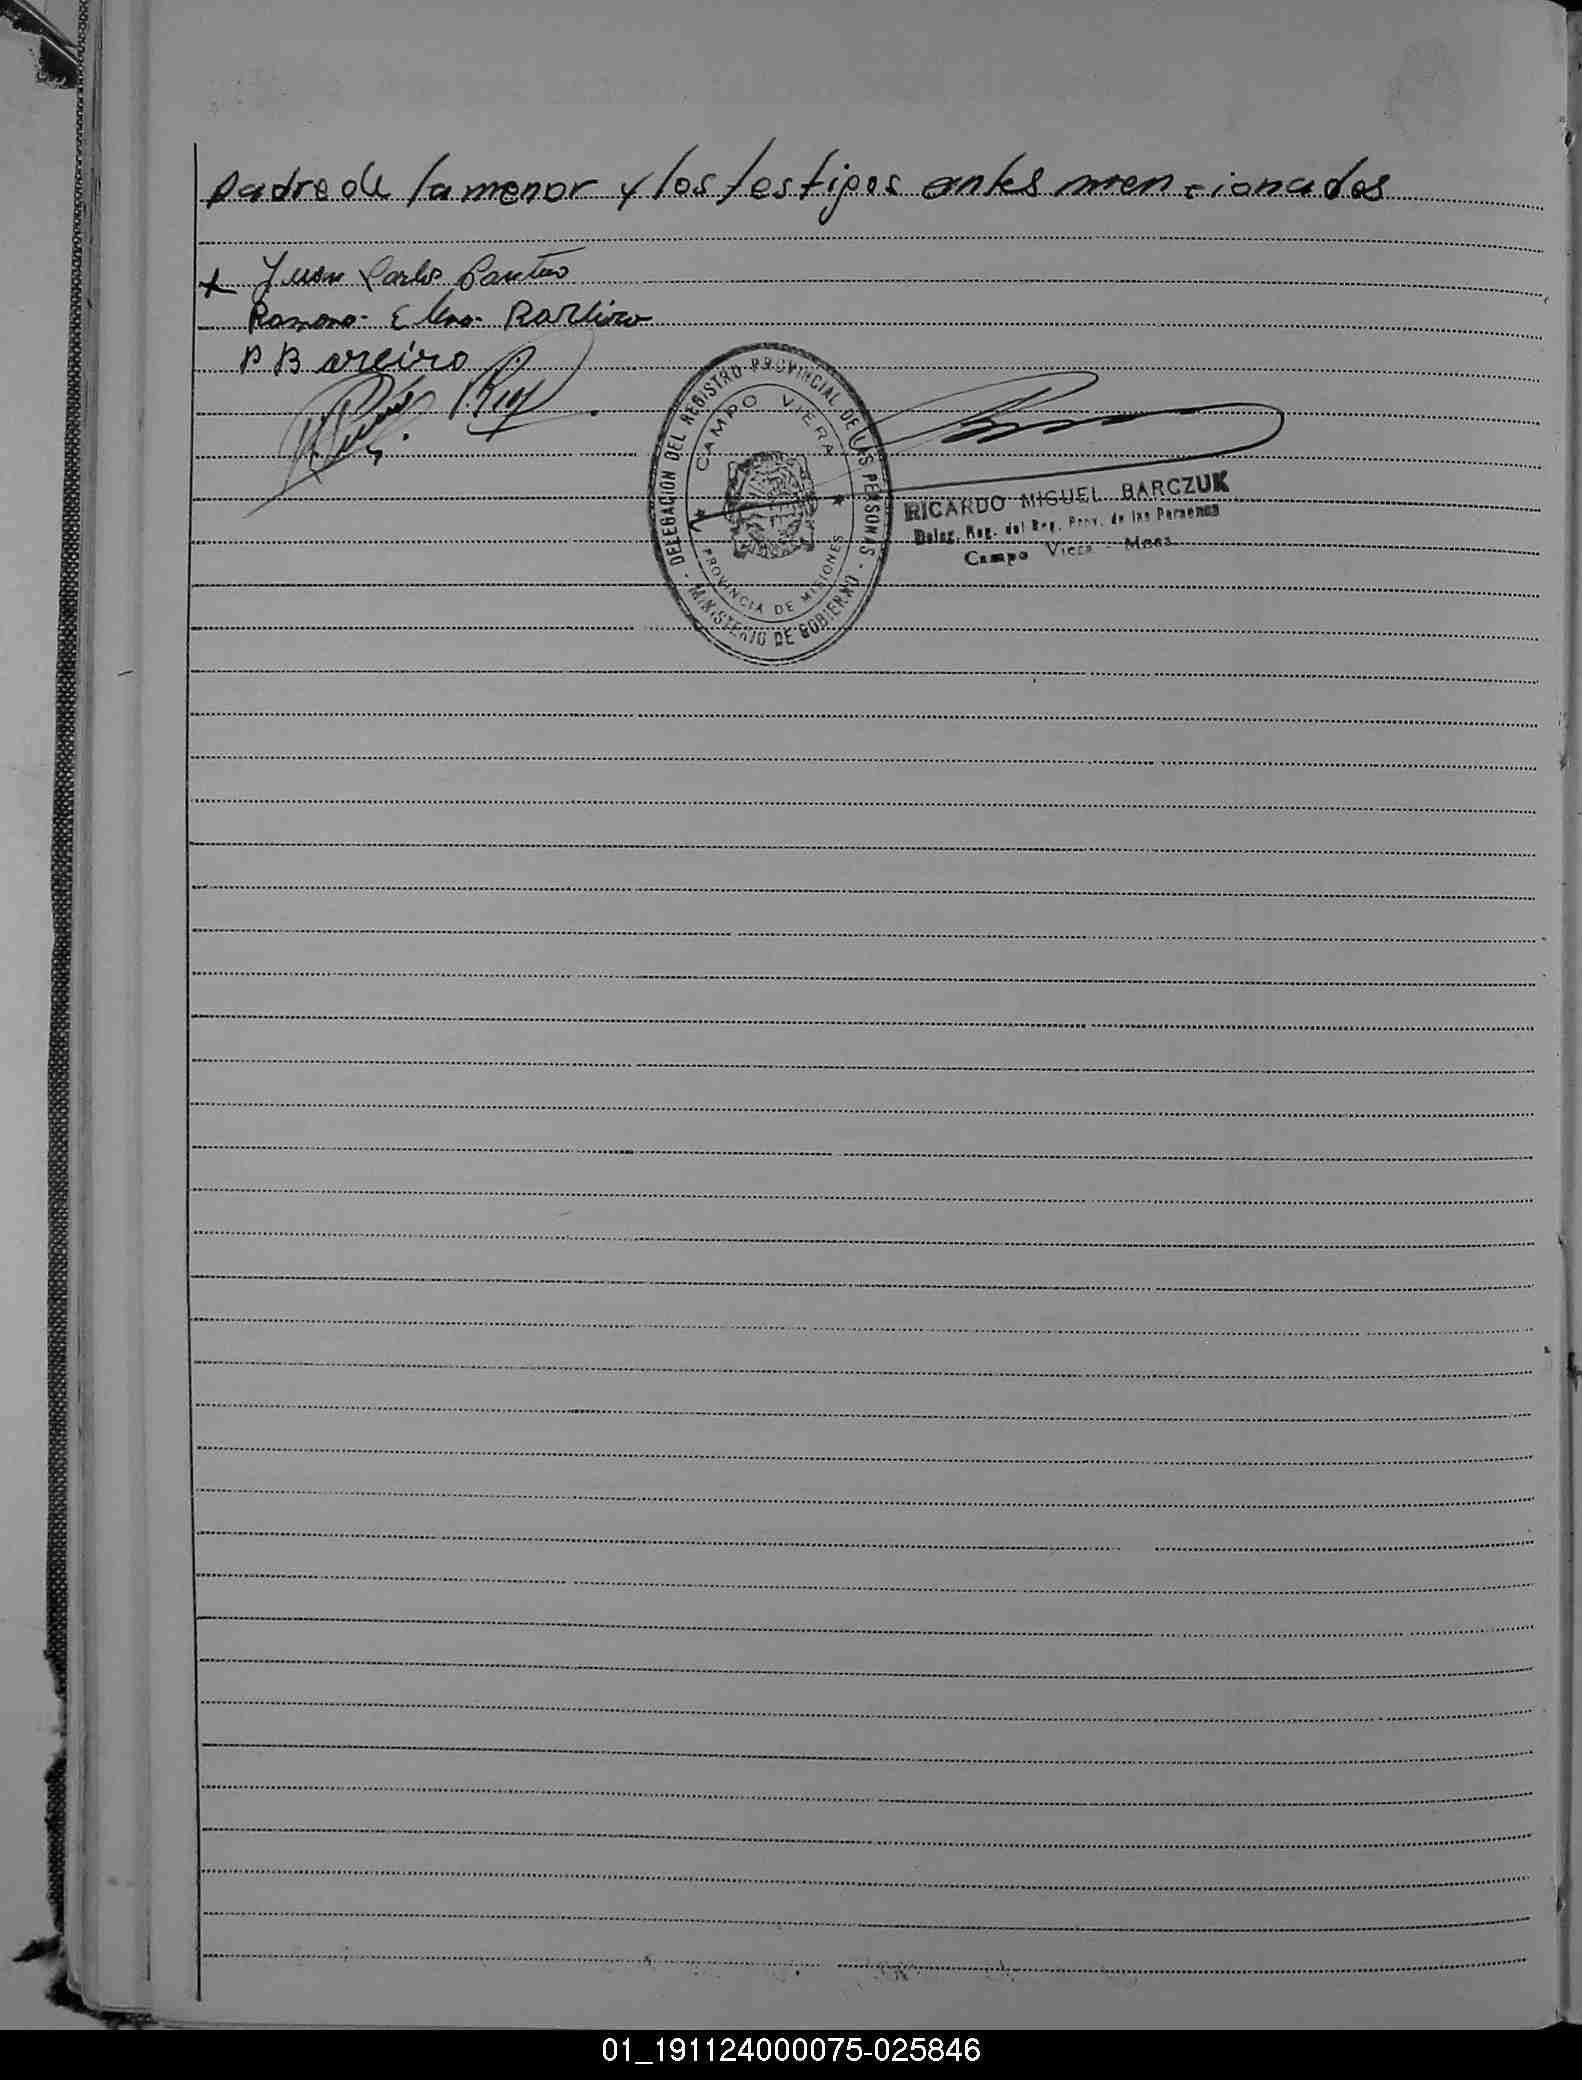 padre de la menor y los testigos antes mencionados
Juan Carlos
Ramona Elena Barreiro
P Bareiro
DELEGACION DEL REGISTRO PROVINCIAL DE LAS PERSONAS - MINISTERIO DE GOBIERNO -
CAMPO VIERA
PROVINCIA DE MISIONES
RICARDO MIGUEL BARCZUK
Deleg. Reg. del Reg. Prov. de las Personas
Campo Viera - Mnes.
01_191124000075-025846